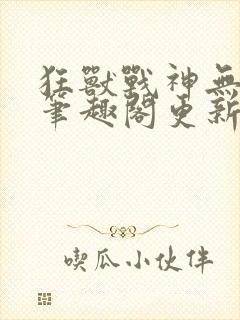 狂獸戰神無
筆趣閣更新
喫瓜小伙伴